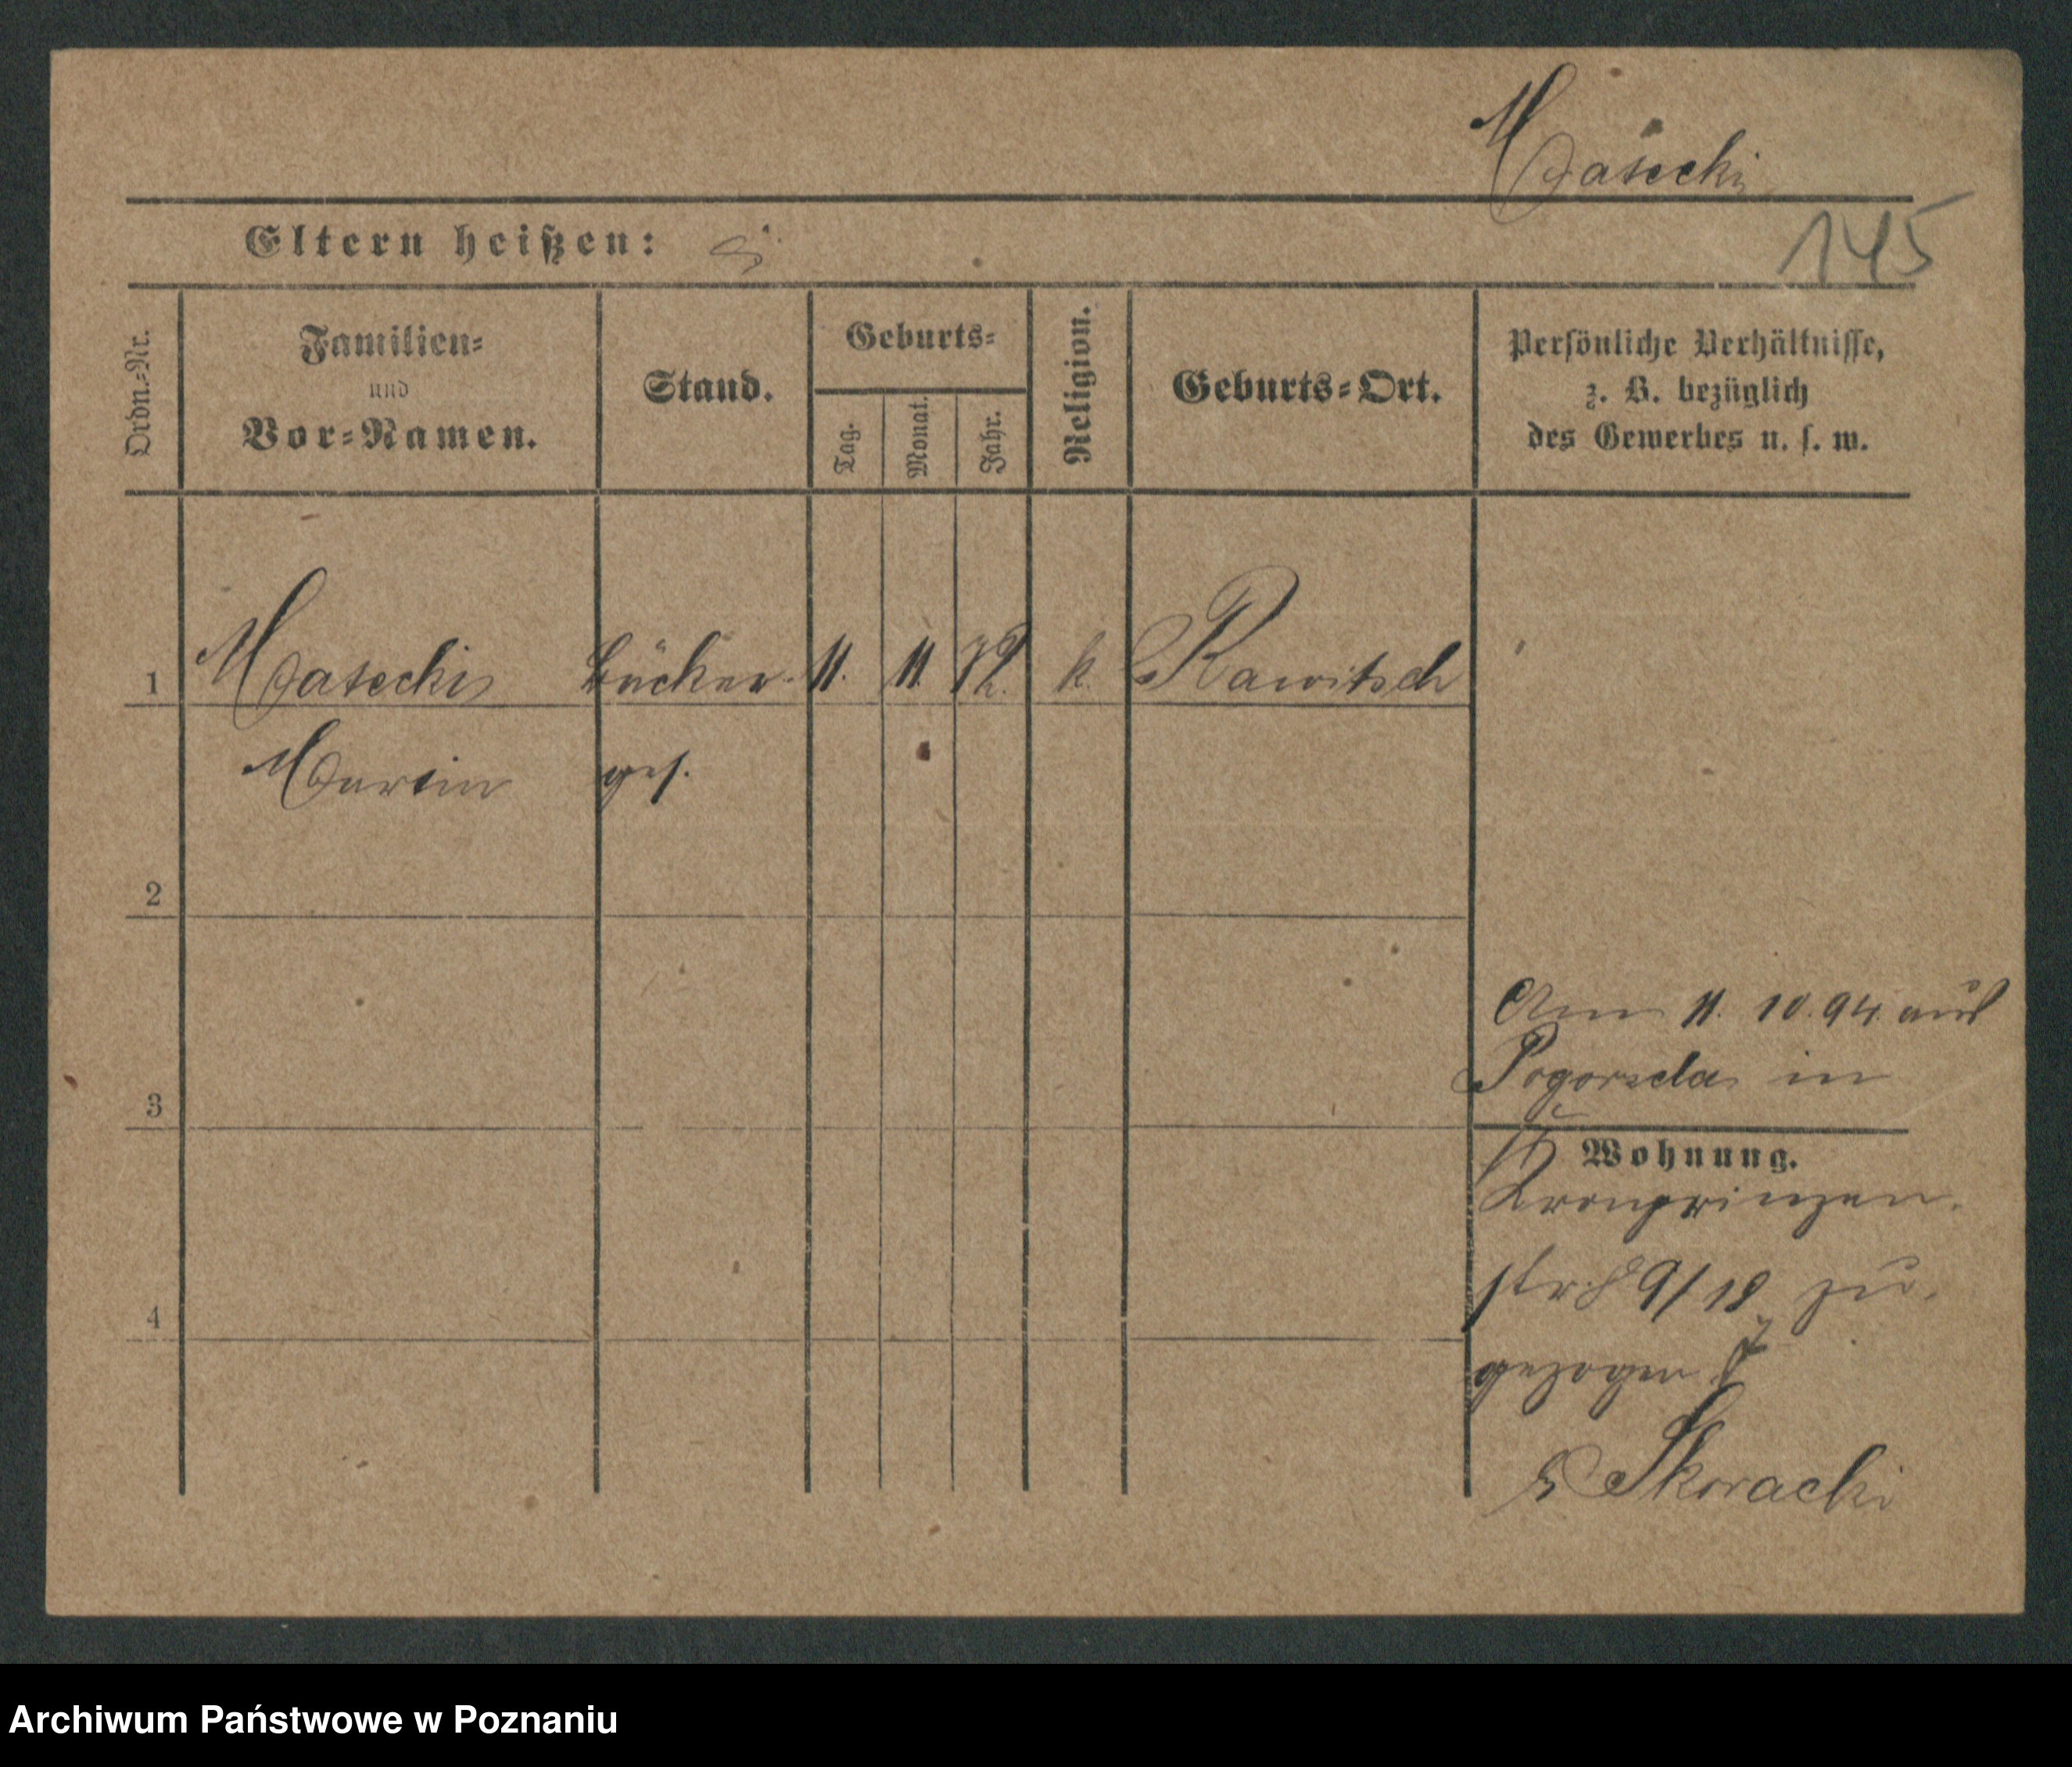 Masecki
145
Eltern heißen:
Ordn.-Nr.
Familien-
und
Vor-Namen.
Stand.
Geburts-
Tag.
Monat.
Jahr.
Religion.
Geburts-Ort.
Persönliche Verhältnisse,
z. B. bezüglich
des Gewerbes u. s. w.
1 Masecki Bäcker 11. 11. 72. k. Rawitsch
Martin ges.
2
3
4
Am 11. 10. 94 aus
Pogorzela in
Wohnung.
Kronprinzen
str. 89/18 zu
gezogen
Skoracki
Archiwum Państwowe w Poznaniu